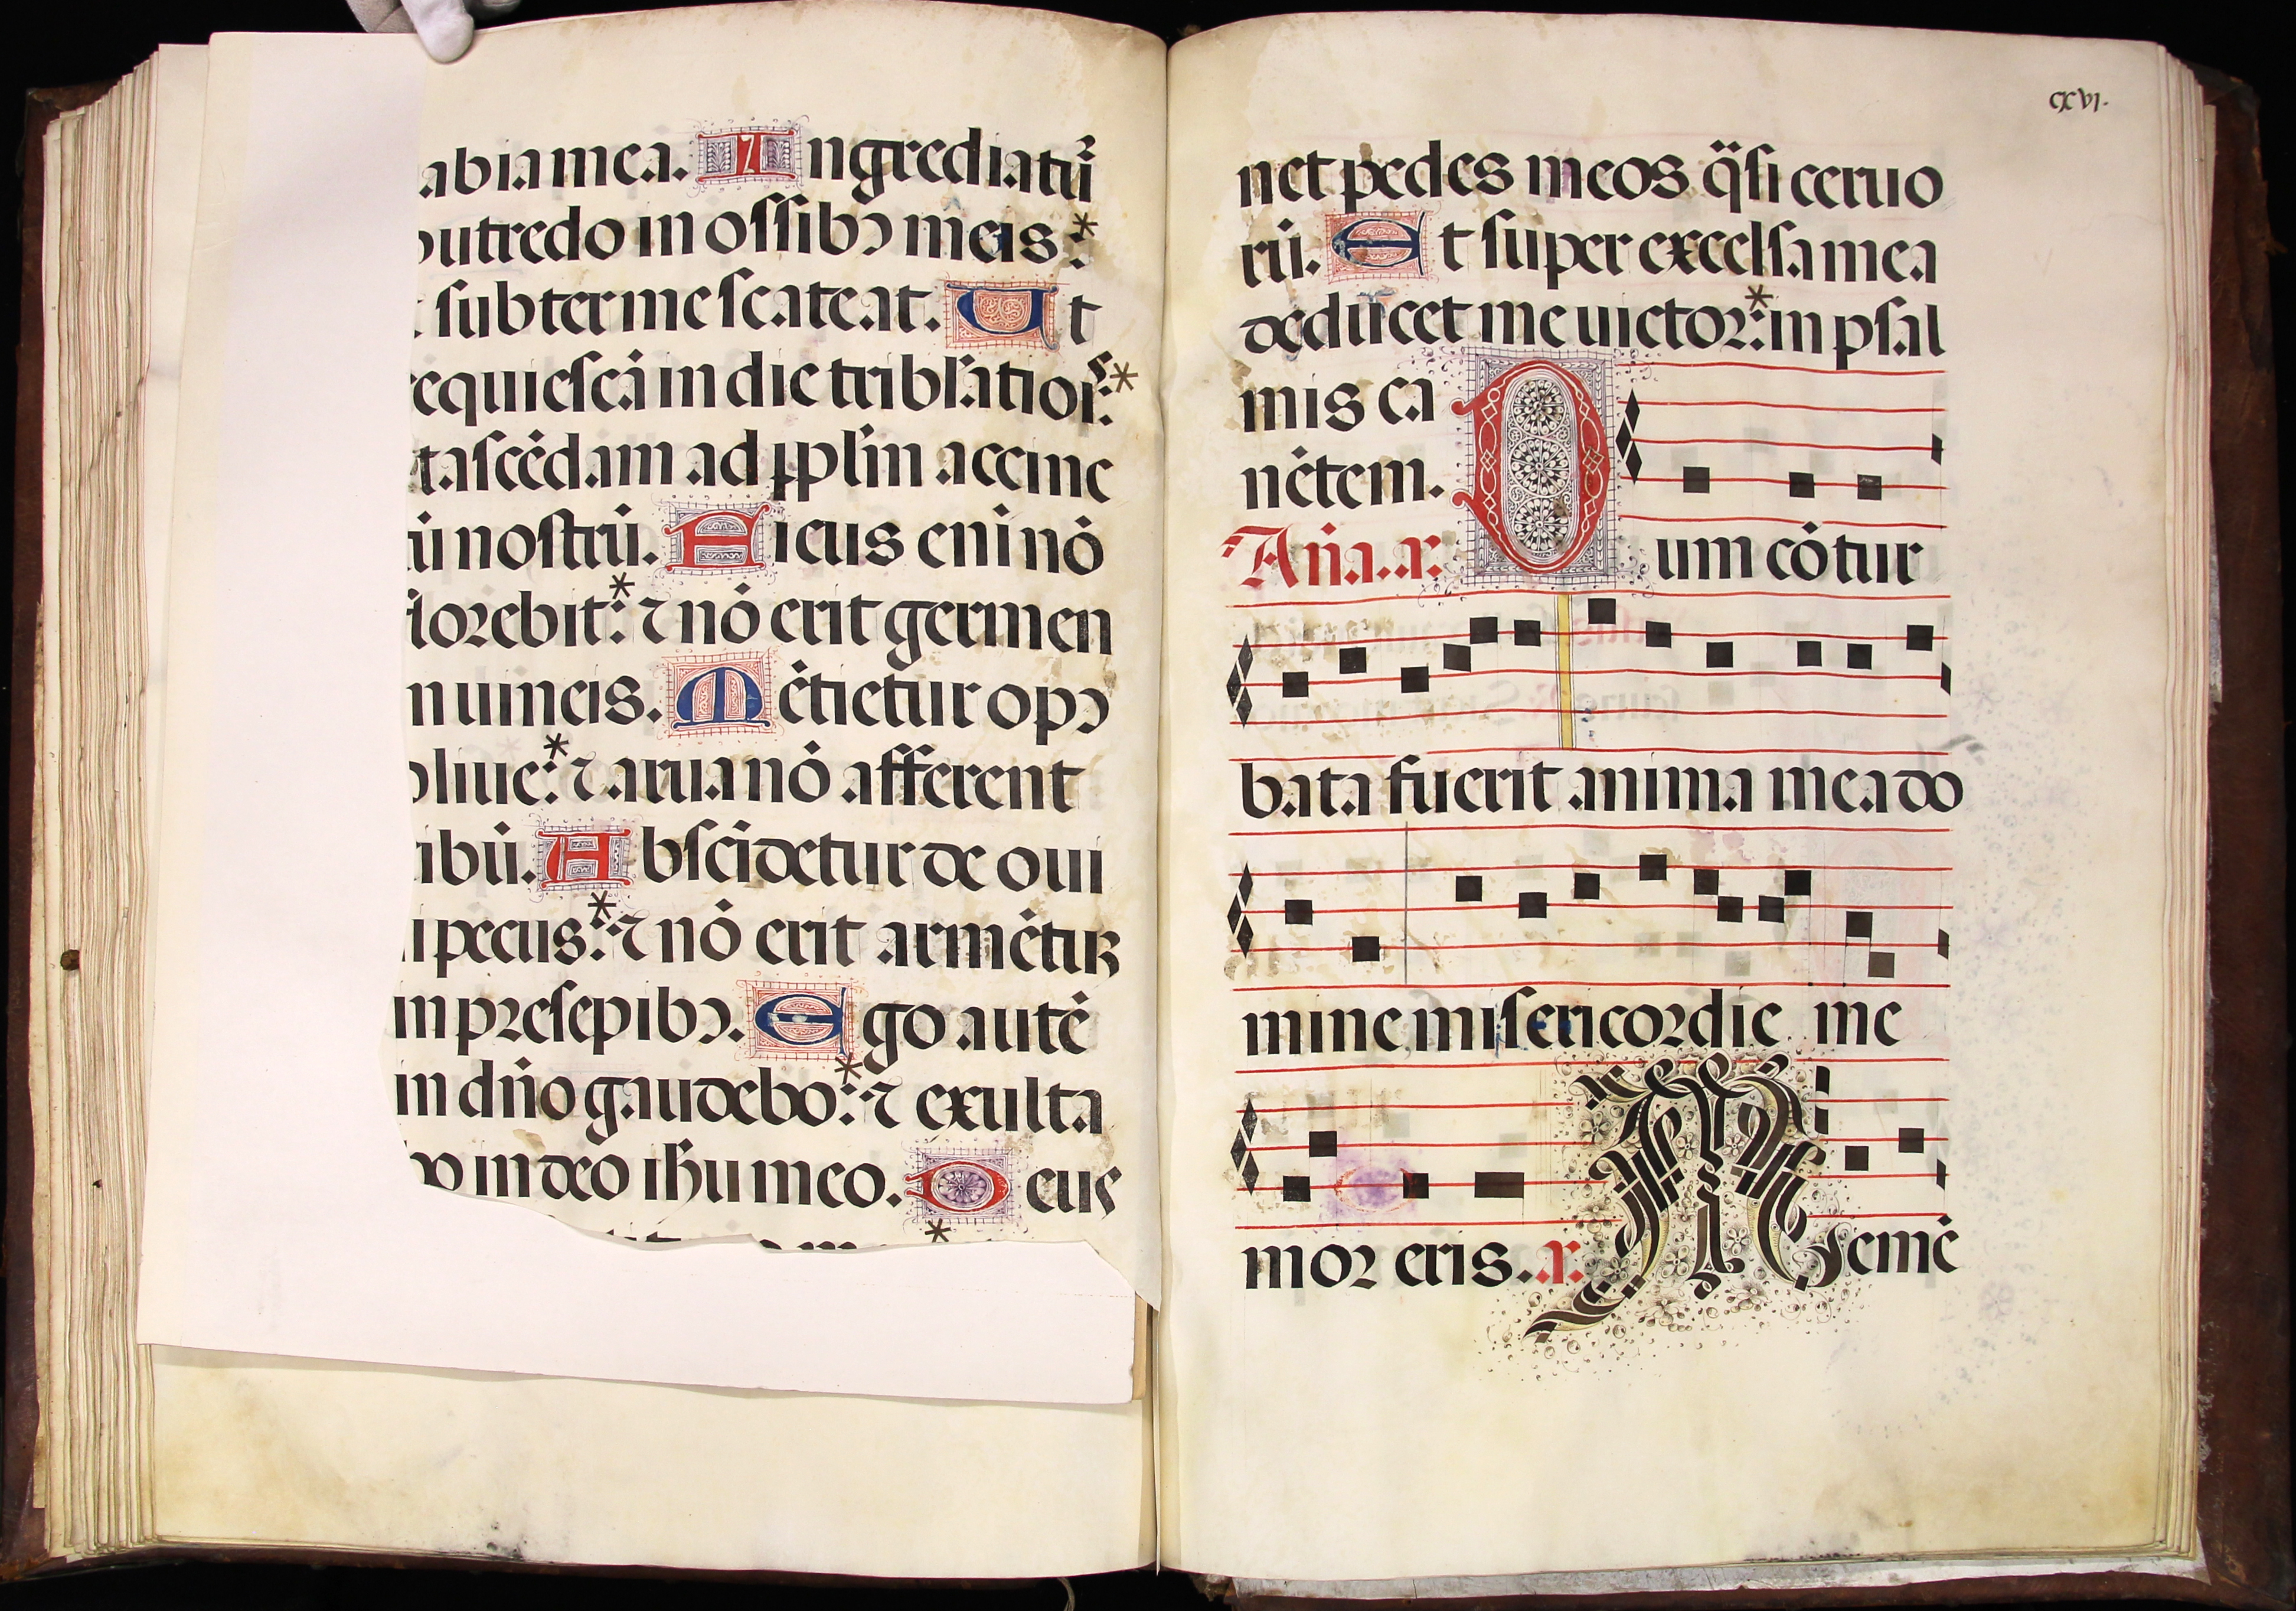 abia mea. Ingrediatur̃
putredo in ossibꝰ meis:*
subter me scateat. Ut
requiescā in die tribl'atiōs:*
t ascēdam ad pplm̄ accinc
ū nostrū. Ficus enī nō
florebit:* ⁊ nō erit germen
in uineis. Mētietur opꝰ
oliue:* ⁊ arua nō afferent
cibū. Abscidetur de oui
li pecus:* ⁊ nō erit armētū
in presepibꝰ. Ego autē
in dn̄o gaudebo:* ⁊ exulta
bo in deo ihu meo. Deus
*
CXVI.
net pedes meos q̈si ceruo
rū. Et super excelsa mea
deducet me uictor:* in psal
mis ca
nētem.
Añã. x. Dum cōtur
bata fuerit anima mea do
mine misericordie me
mor eris. x. Memē